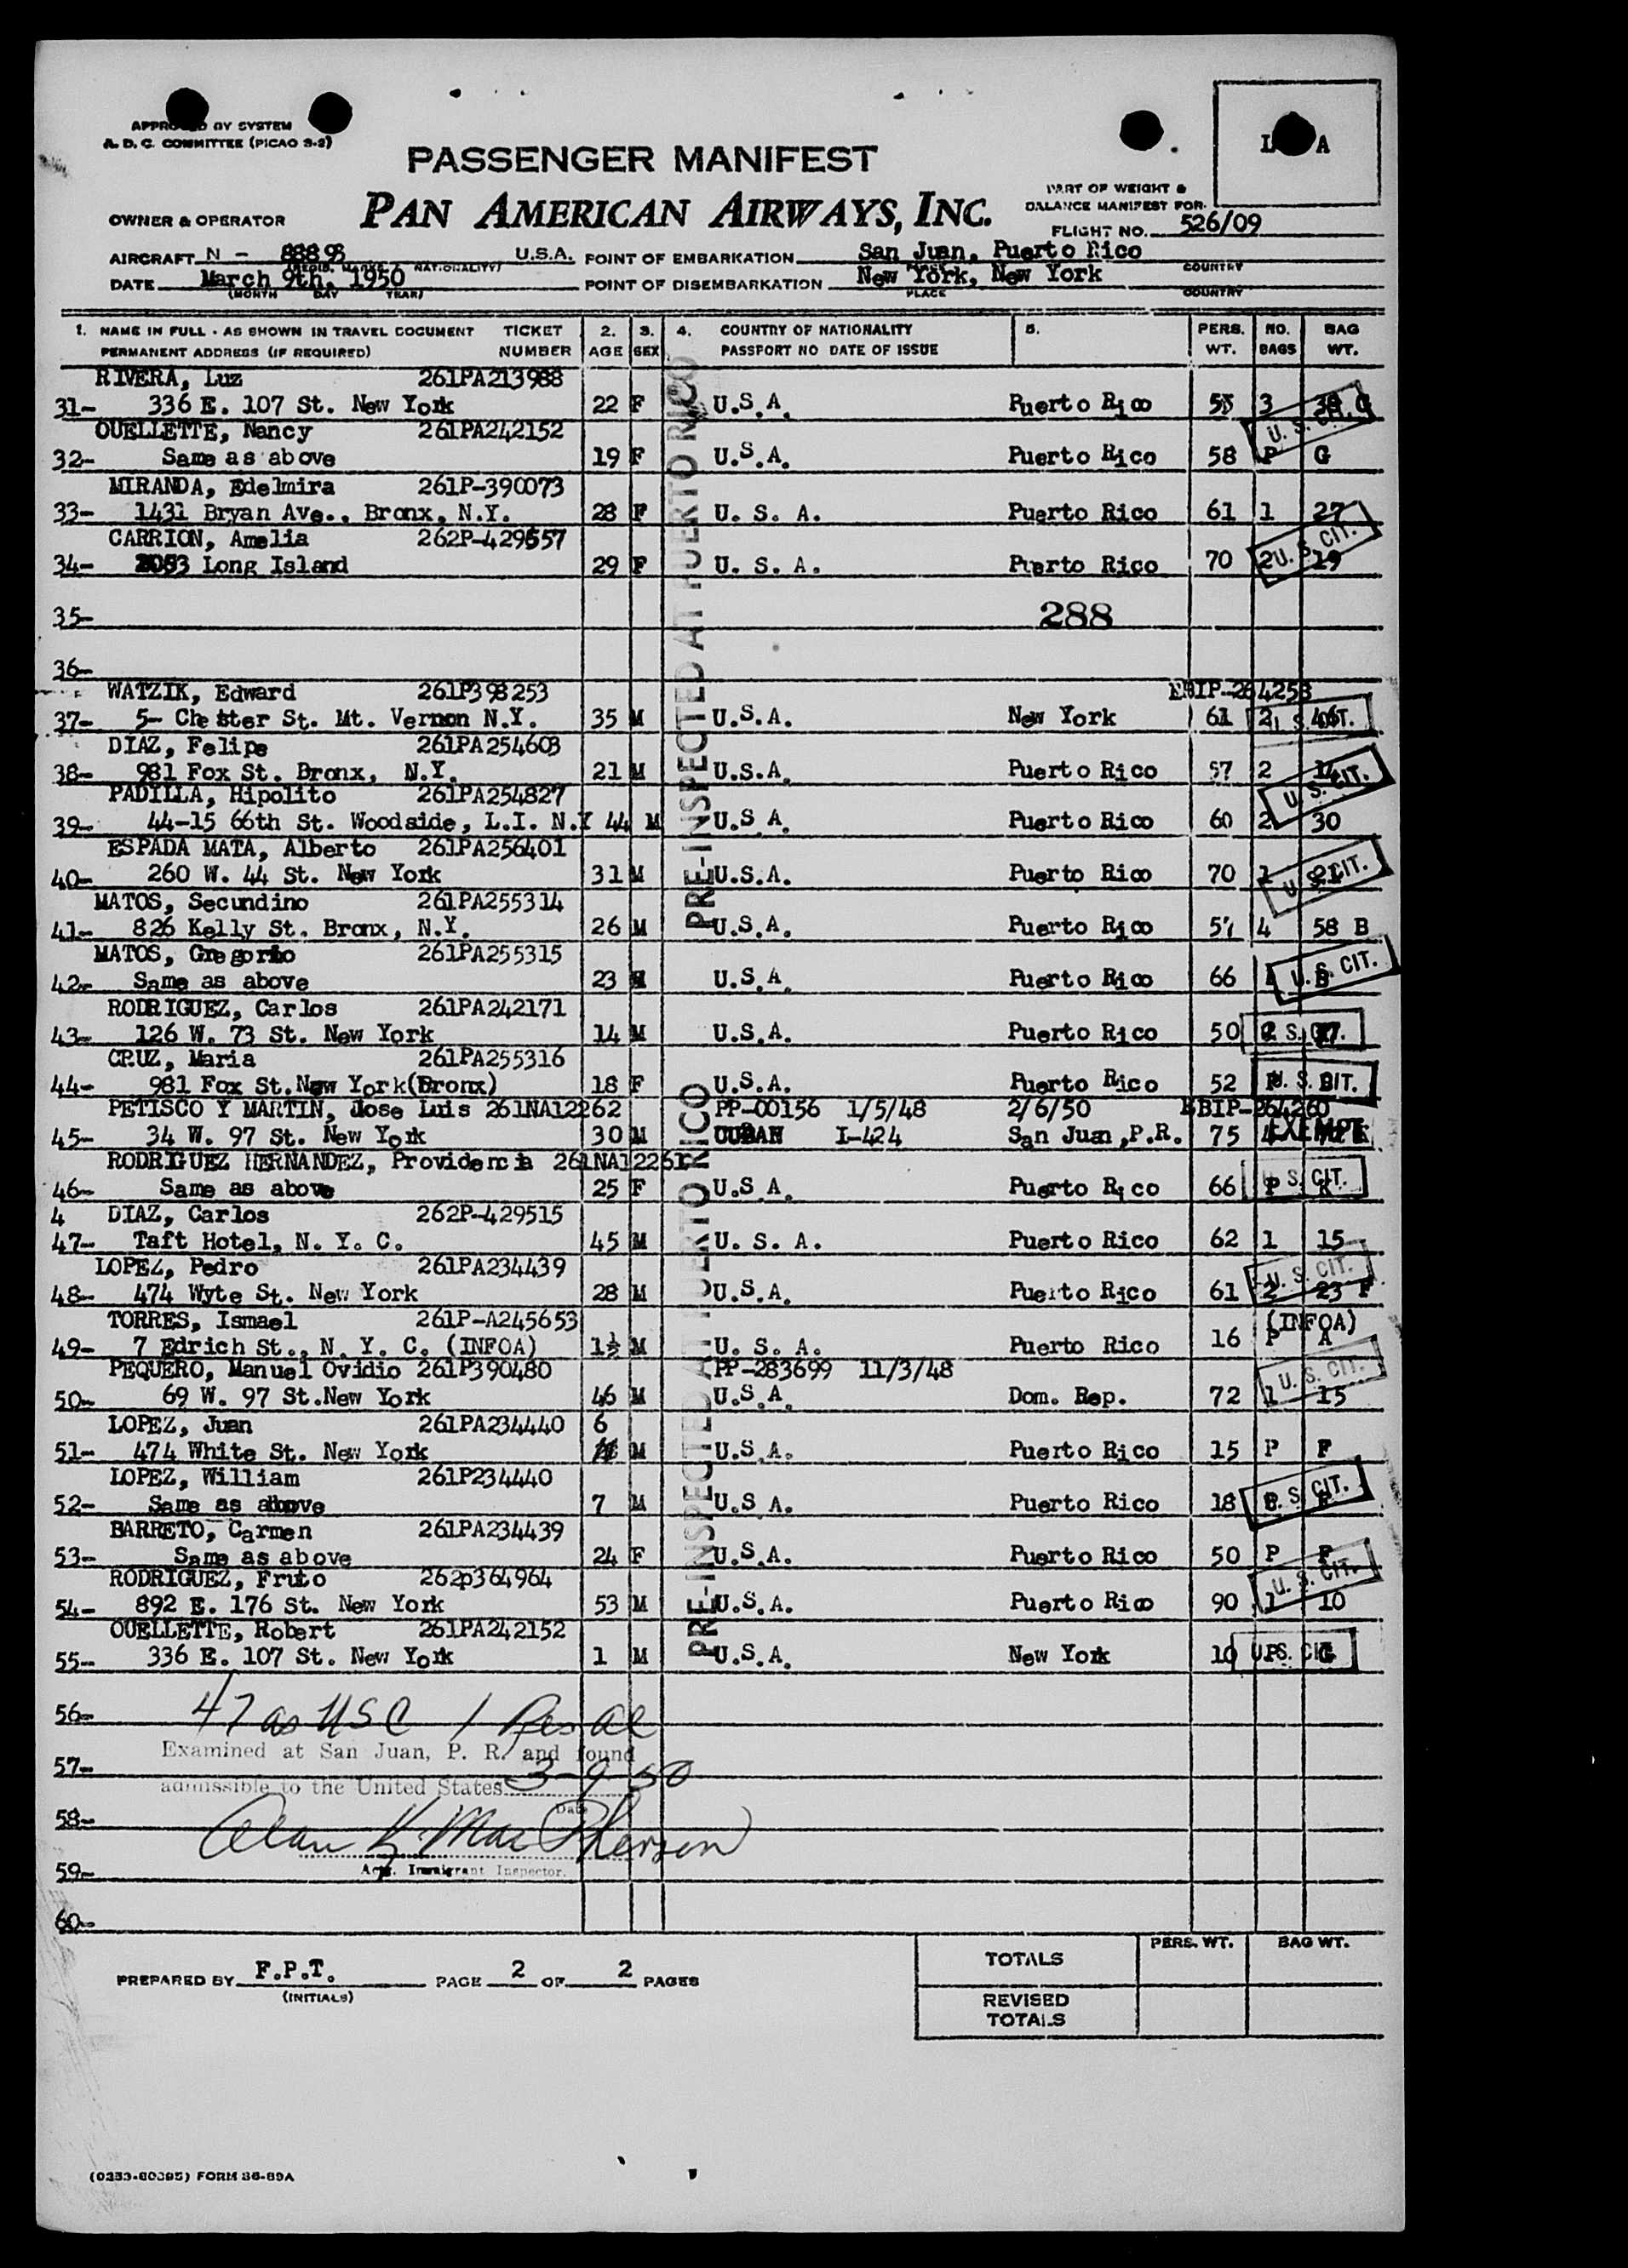 APPROVED BY SYSTEM
A. D. C. COMMITTEE (PICAO 3-2)
PASSENGER MANIFEST
PAN AMERICAN AIRWAYS, INC.
L A
PART OF WEIGHT &
BALANCE MANIFEST FOR
OWNER & OPERATOR
FLIGHT NO. 526/09
AIRCRAFT N - U.S.A. POINT OF EMBARKATION San Juan, Puerto Rico
NATIONALITY) COUNTRY
DATE March 9th, 1950 POINT OF DISEMBARKATION New York, New York
(MONTH DAY YEAR) PLACE COUNTRY
1. NAME IN FULL - AS SHOWN IN TRAVEL DOCUMENT TICKET 2. 3. 4. COUNTRY OF NATIONALITY 5. PERS. NO. BAG
PERMANENT ADDRESS (IF REQUIRED) NUMBER AGE SEX PASSPORT NO DATE OF ISSUE WT. BAGS WT.
RIVERA, Luz 261PA213988
31- 336 E. 107 St. New York 22 F U.S.A. Puerto Rico 3 G
OUELLETTE, Nancy 261PA242152 U. S. CIT.
32- Same as above 19 F U.S.A. Puerto Rico 58 P G
MIRANDA, Edelmira 261P-390073
33- 1431 Bryan Ave., Bronx, N.Y. 28 F U. S. A. Puerto Rico 61 1 27
CARRION, Amelia 262P-429557 U. S. CIT.
34- Long Island 29 F U. S. A. Puerto Rico 70 2 19
35- 288
36-
WATZIK, Edward 261P398253
37- 5- Chester St. Mt. Vernon N.Y. 35 M U.S.A. New York 61 2 46
DIAZ, Felipe 261PA254603
38- 981 Fox St. Bronx, N.Y. 21 M U.S.A. Puerto Rico 57 2 U. S. CIT.
PADILLA, Hipolito 261PA254827
39- 44-15 66th St. Woodside, L.I. N.Y 44 M U.S A. Puerto Rico 60 2 30
ESPADA MATA, Alberto 261PA256401
40- 260 W. 44 St. New York 31 M U.S.A. Puerto Rico 70 1 21 U. S. CIT.
MATOS, Secundino 261PA255314
41- 826 Kelly St. Bronx, N.Y. 26 M U.S.A. Puerto Rico 57 4 58 B
MATOS, Gregorio 261PA255315
42- Same as above 23 U.S.A. Puerto Rico 66 B U. S. CIT.
RODRIGUEZ, Carlos 261PA242171
43- 126 W. 73 St. New York 14 M U.S.A. Puerto Rico 50 2
CRUZ, Maria 261PA255316
44- 981 Fox St. New York(Bronx) 18 F U.S.A. Puerto Rico 52 P U. S. CIT.
PETISCO Y MARTIN, Jose Luis 261NA12262 PP-00156 1/5/48 2/6/50
45- 34 W. 97 St. New York 30 M CUBAN I-424 San Juan,P.R. 75 EXEMPT
RODRIGUEZ HERNANDEZ, Providencia 261NA12261
46- Same as above 25 F U.S A. Puerto Rico 66 P K U. S. CIT.
4 DIAZ, Carlos 262P-429515
47- Taft Hotel, N. Y. C. 45 M U. S. A. Puerto Rico 62 1 15
LOPEZ, Pedro 261PA234439 U. S. CIT.
48- 474 Wyte St. New York 28 M U.S.A. Puerto Rico 61 2 23 F
TORRES, Ismael 261P-A245653 (INFOA)
49- 7 Edrich St., N. Y. C. (INFOA) 1½ M U. S. A. Puerto Rico 16 P A
PEQUERO, Manuel Ovidio 261P390480 PP-283699 11/3/48 U. S. CIT.
50- 69 W. 97 St.New York 46 M U.S.A. Dom. Rep. 72 1 15
LOPEZ, Juan 261PA234440 6
51- 474 White St. New York M U.S.A. Puerto Rico 15 P F
LOPEZ, William 261P234440
52- Same as above 7 M U.S A. Puerto Rico 18 U. S. CIT.
BARRETO, Carmen 261PA234439
53- Same as above 24 F U.S.A. Puerto Rico 50 P F
RODRIGUEZ, Fruto 262p364964 U. S. CIT.
54- 892 E. 176 St. New York 53 M U.S.A. Puerto Rico 90 1 10
OUELLETTE, Robert 261PA242152
55- 336 E. 107 St. New York 1 M U.S.A. New York 10 P G U. S. CIT.
PRE-INSPECTED AT PUERTO RICO
PRE-INSPECTED AT PUERTO RICO
56- 47 as USC 1
Examined at San Juan, P. R. and found
57-
admissible to the United States 3-9-50
Date
58- Alan K. MacPherson
59- Actg. Immigrant Inspector.
60-
PERS. WT. BAG WT.
TOTALS
PREPARED BY F.P.T. PAGE 2 OF 2 PAGES
(INITIALS)
REVISED
TOTALS
FORM 36-89A